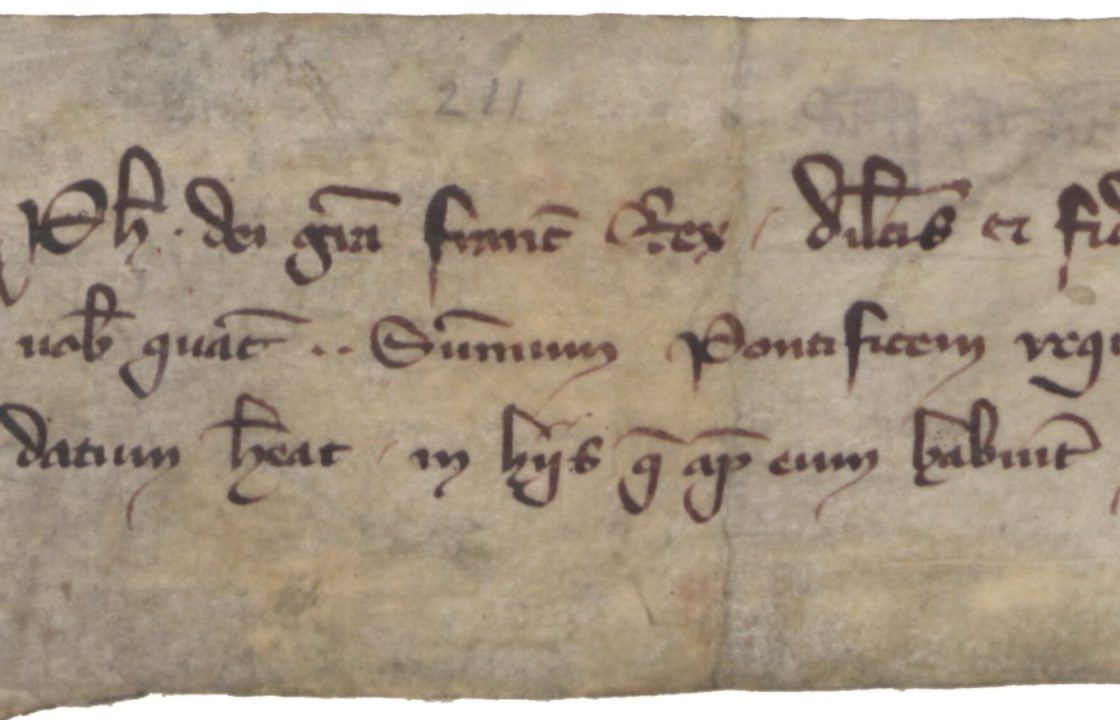 211
Ph̄ · dei grā franc̄ Rex · Dil̄cis et fid
uob̄ quāt ·· Sum̄mum Pontificem requ
datum h̄eat · in hijs q̄ ap̄ eum hābuīt